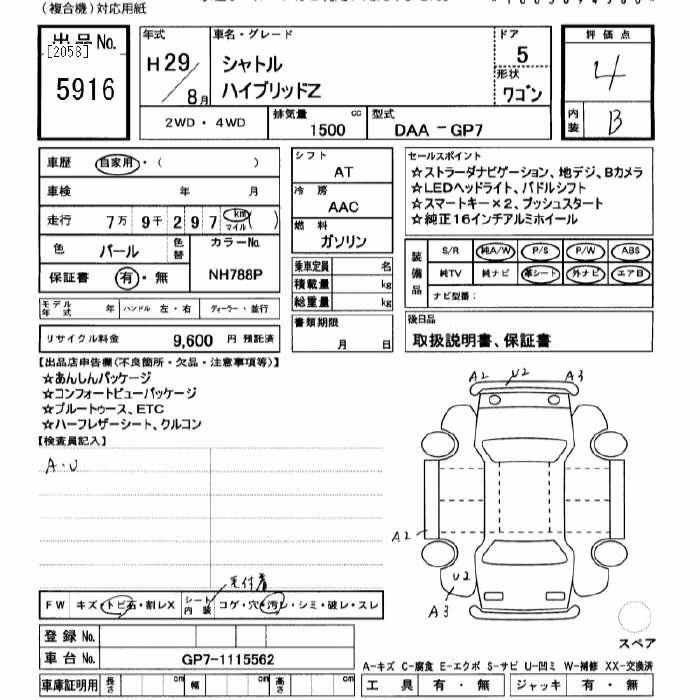 (複合機)対応用紙
出品No.
[2058]
5916
年式
H29/8月
車名・グレード
シャトル
ハイブリッドZ
ドア
5
形状
ワゴン
2WD・4WD
排気量
1500 cc
型式
DAA-GP7
評価点
4
内装
B
車歴 自家用・( )
車検 年 月
走行 7万9千297 km マイル ( )
色 パール 色替 カラーNo. NH788P
保証書 有・無
モデル年式 年 ハンドル 左・右 ディーラー・並行
リサイクル料金 9,600 円 預託済
シフト
AT
冷房
AAC
燃料
ガソリン
乗車定員 名
積載量 kg
総重量 kg
書類期限
月 日
セールスポイント
☆ストラーダナビゲーション、地デジ、Bカメラ
☆LEDヘッドライト、パドルシフト
☆スマートキー×2、プッシュスタート
☆純正16インチアルミホイール
装備品
S/R 純A/W P/S P/W ABS
純TV 純ナビ 革シート 外ナビ エアB
ナビ型番:
後日品
取扱説明書、保証書
【出品店申告欄(不良箇所・欠品・注意事項等)】
☆あんしんパッケージ
☆コンフォートビューパッケージ
☆ブルートゥース、ETC
☆ハーフレザーシート、クルコン
【検査員記入】
A・U
A2 U2 A3
A2
U2
A3
毛付着
FW キズ・トビ石・割レX シート内装 コゲ・穴・汚レ・シミ・破レ・スレ
スペア
登録No.
車台No. GP7-1115562
車庫証明用 長さ cm 幅 cm 高さ cm
A-キズ C-腐食 E-エクボ S-サビ U-凹ミ W-補修 XX-交換済
工具 有・無 ジャッキ 有・無